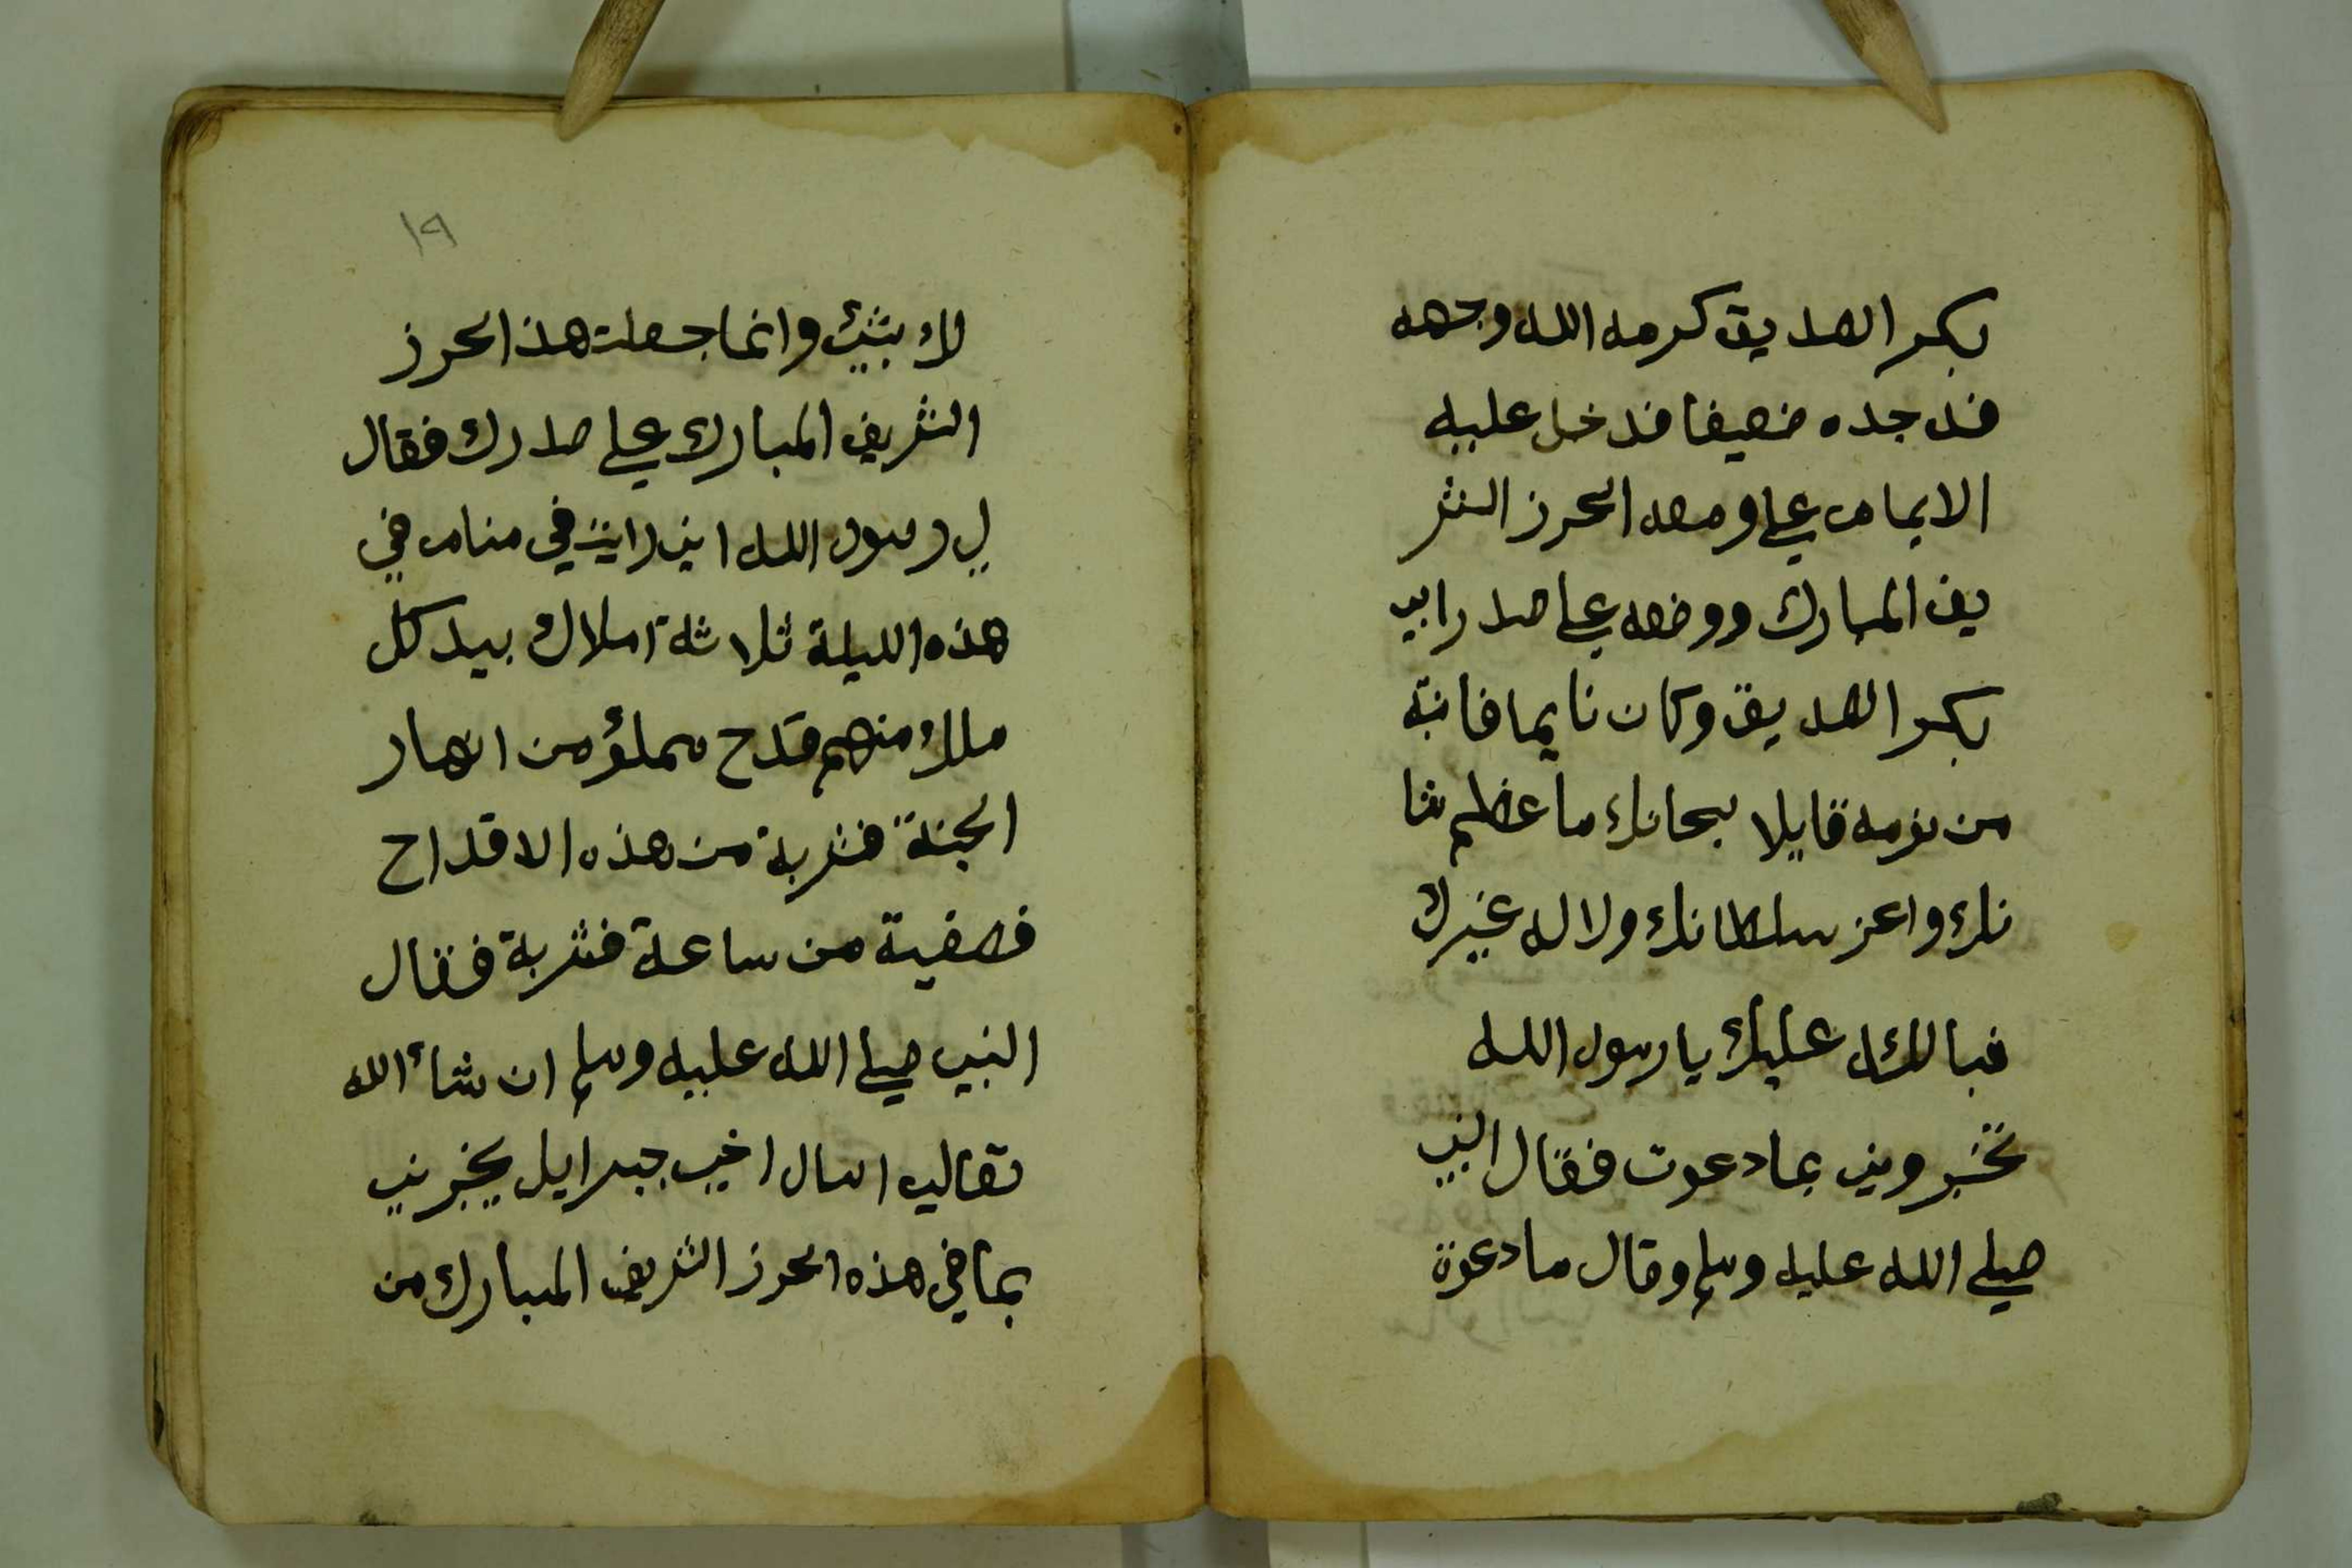 بكر الصديق كرمه الله وجهه
فدجده ضعيفا فدخل عليه
الايمام علي ومعه الحرز الشر
يف المبارك ووضعه علي صدر ابي
بكر الصديق وكان نايما فانتبة
من نومه قايلا سبحانك ما عظم شا
نك واعز سلطانك ولا اله غيرك
فبالله عليك يا رسول الله
تخبروني بما دعوت فقال النبي
صلي الله عليه وسلم وقال ما دعوة
لك بشئ وانما جعلت هذا الحرز
الشريف المبارك علي صدرك فقال
لي رسول الله اني رايت في منام في
هذه الليلة ثلاثة املاك بيد كل
ملك منهم قدح مملؤ من انهار
الجنة فشربة من هذه الاقداح
فصفية من ساعة فشربة فقال
النبي صلي الله عليه وسلم ان شأ الله
تعالي اسال اخي جبرايل يخبرني
بما في هذه الحرز الشريف المبارك من
١٩